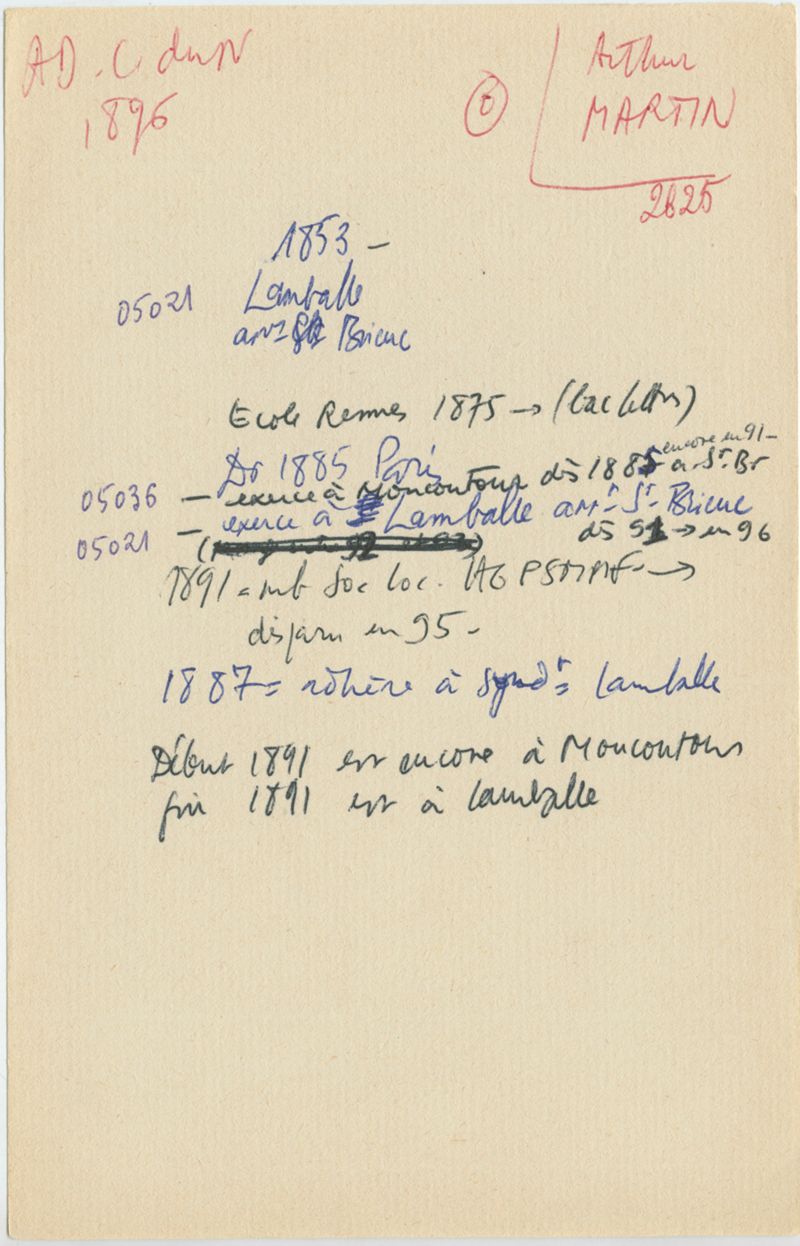 AD. C du N
1896
Arthur
MARTIN
2825
1853 –
05021 Lamballe
arrt St Brieuc
Ecole Rennes 1875 → (bac lettres)
Dr 1885 Paris
encore en 91 –
05036 – exerce à Moncontour dès 1885 à St. Br
05021 – exerce à Lamballe arrt St-Brieuc
dès 91 → en 96
1891 = mb Soc loc. AGPSMMF →
disparu en 95 –
1887 = adhère à Syndt = Lamballe
Début 1891 est encore à Moncontour
fin 1891 est à Lamballe